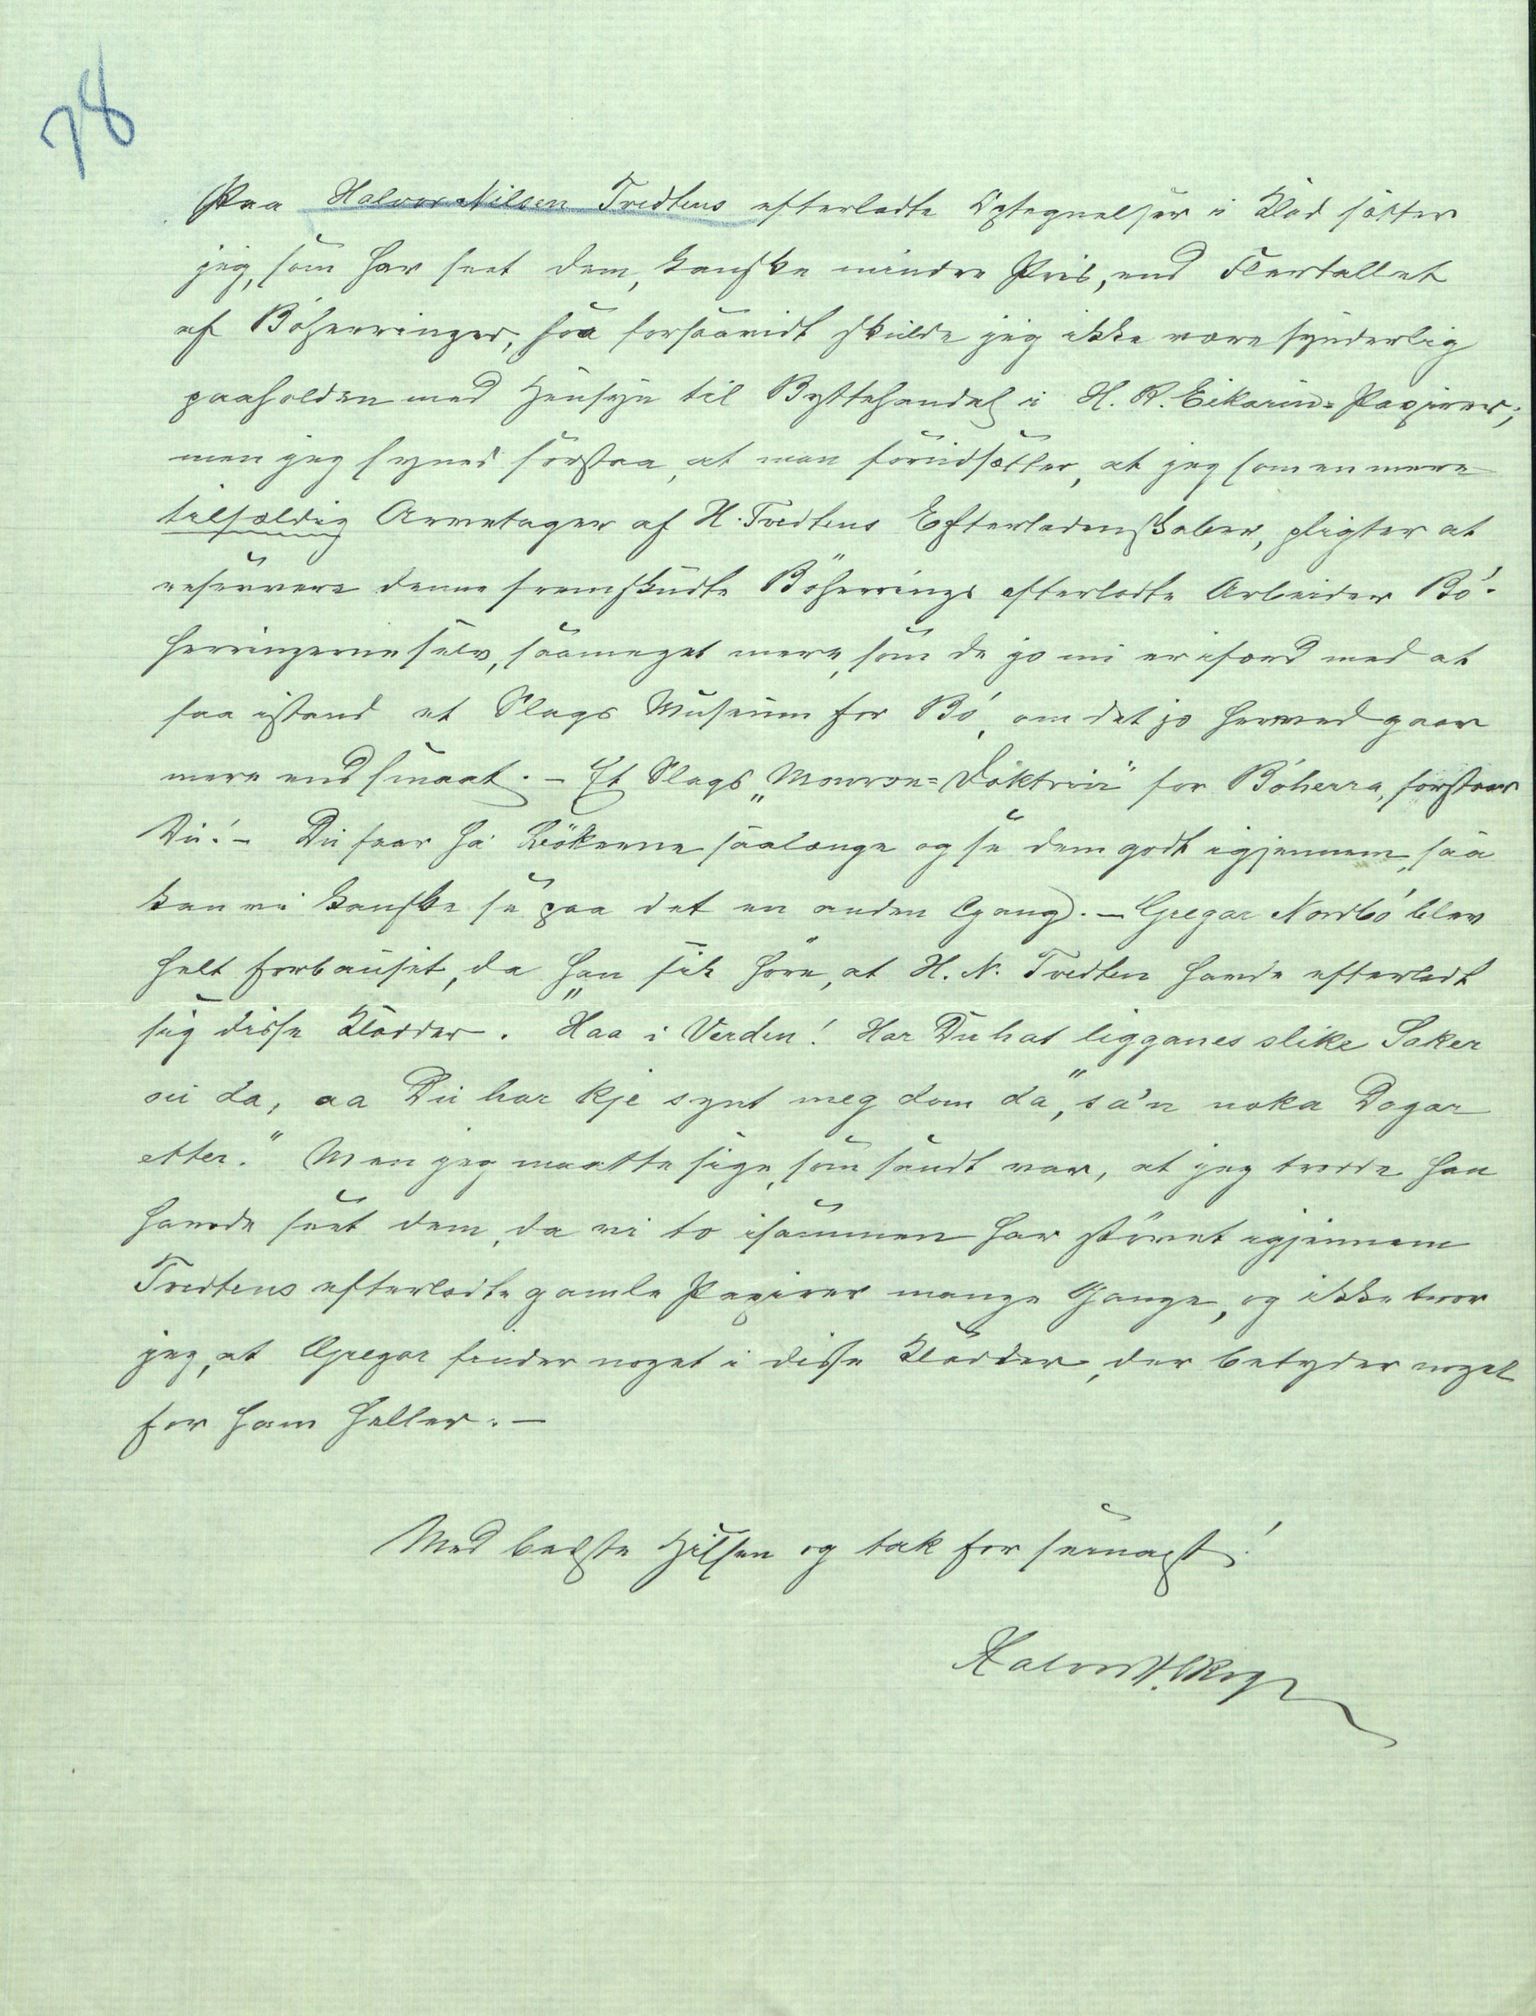 78
Paa Halvor Nilsen Tvedtens efterladte Optegnelser i Klad sætter
jeg, som har seet dem, kanske mindre Pris, end Flertallet
af Böherringer, saa forsaavidt skulde jeg ikke være synderlig
paaholden med Hensyn til Byttehandel i H. R. Eikarins Papirer;
men jeg synes forstaa, at man forudsætter, at jeg som en mere
tilfældig Arvetager af H. Tvedtens Efterladenskaber, pligter at
reservere denne fremskudte Böherrings efterladte Arbeider Bö-
herringerne selv, saameget mere, som de jo nu er ifærd med at
faa istand et Slags Museum for Bö, om det jo hermed gaar
mere end smaat. - Et Slags „Monroe-Doktrin" for Böherra, forstaar
Du! - Du faar ha Bökerne saalænge og se dem godt igjennem, saa
kan vi kanske se paa det en anden Gang. - Gregar Nordbö blev
helt forbauset, da han fik höre, at H. N. Tvedten havde efterladt
sig disse Kladder. „Haa i Verden! Har Du hat ligganes slike Saker
du da, aa Du har kje synt meg dom da", sa'n noka Dagar
etter." Men jeg maatte sige, som sandt var, at jeg troede han
havde seet dem, da vi to isammen har stövet igjennem
Tvedtens efterladte gamle Papirer mange Gange, og ikke tror
jeg, at Gregar finder noget i disse Kladder, der betyder noget
for ham heller. -
Med bedste Hilsen og tak for seinast!
Halvor H.